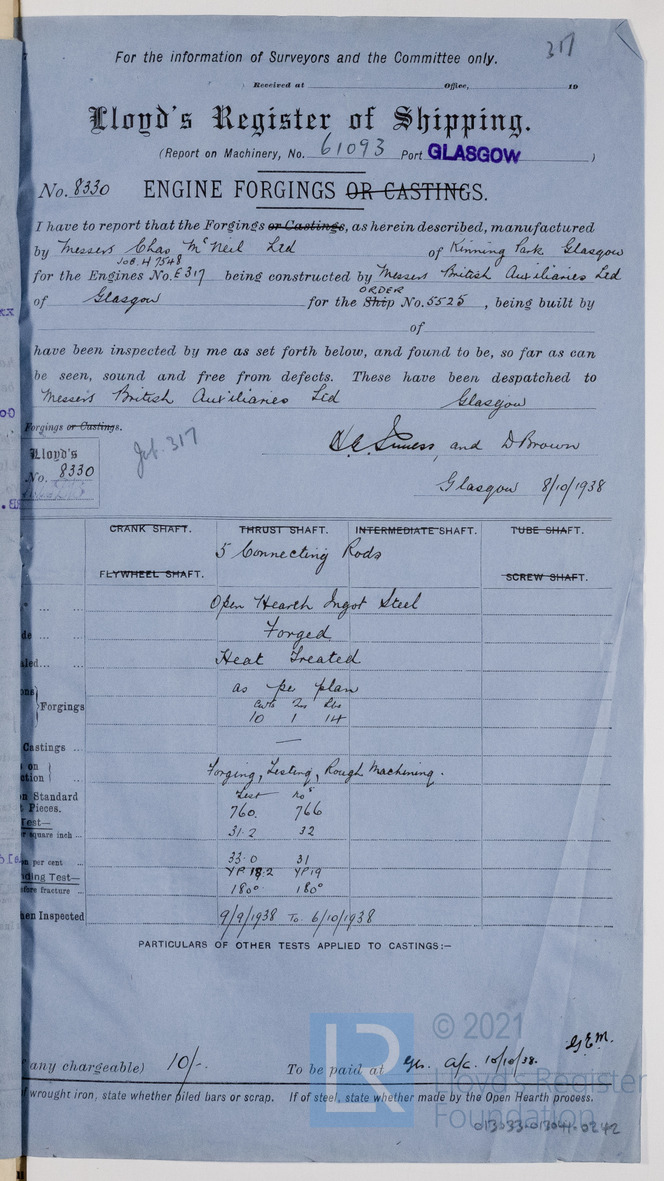 317
For the information of Surveyors and the Committee only.
Received at Office, 19
Lloyd's Register of Shipping.
(Report on Machinery, No. 61093 Port GLASGOW )
No. 8330 ENGINE FORGINGS OR CASTINGS.
I have to report that the Forgings or Castings, as herein described, manufactured
by Messers Chas McNeil Ltd of Kinning Park Glasgow
JOB. H 7548
for the Engines No. E317 being constructed by Messers British Auxiliaries Ltd
ORDER
of Glasgow for the Ship No. 5525, being built by
of
have been inspected by me as set forth below, and found to be, so far as can
be seen, sound and free from defects. These have been despatched to
Messers British Auxiliaries Ltd Glasgow
Forgings or Castings.
Lloyd's
No. 8330
317
and D Brown
Glasgow 8/10/1938
CRANK SHAFT. THRUST SHAFT. INTERMEDIATE SHAFT. TUBE SHAFT.
5 Connecting Rods
FLYWHEEL SHAFT. SCREW SHAFT.
Open Hearth Ingot Steel
Forged
Heat Treated
as per plan
Forgings
Cwts Qrs Lbs
10 1 14
Castings ...
—
Forging, Testing, Rough Machining.
Standard
Pieces.
Test Nos
760. 766
Test—
square inch ... 31.2 32
per cent ... 33.0 31
YP 18.2 YP 19
ding Test—
fore fracture ... 180° 180°
en Inspected 9/9/1938 To 6/10/1938
PARTICULARS OF OTHER TESTS APPLIED TO CASTINGS:—
© 2021
G.E.M.
any chargeable) 10/-. To be paid at Gls. a/c. 10/10/38.
LR
Lloyd's Register
Foundation
f wrought iron, state whether piled bars or scrap. If of steel, state whether made by the Open Hearth process.
013033-013041-0242